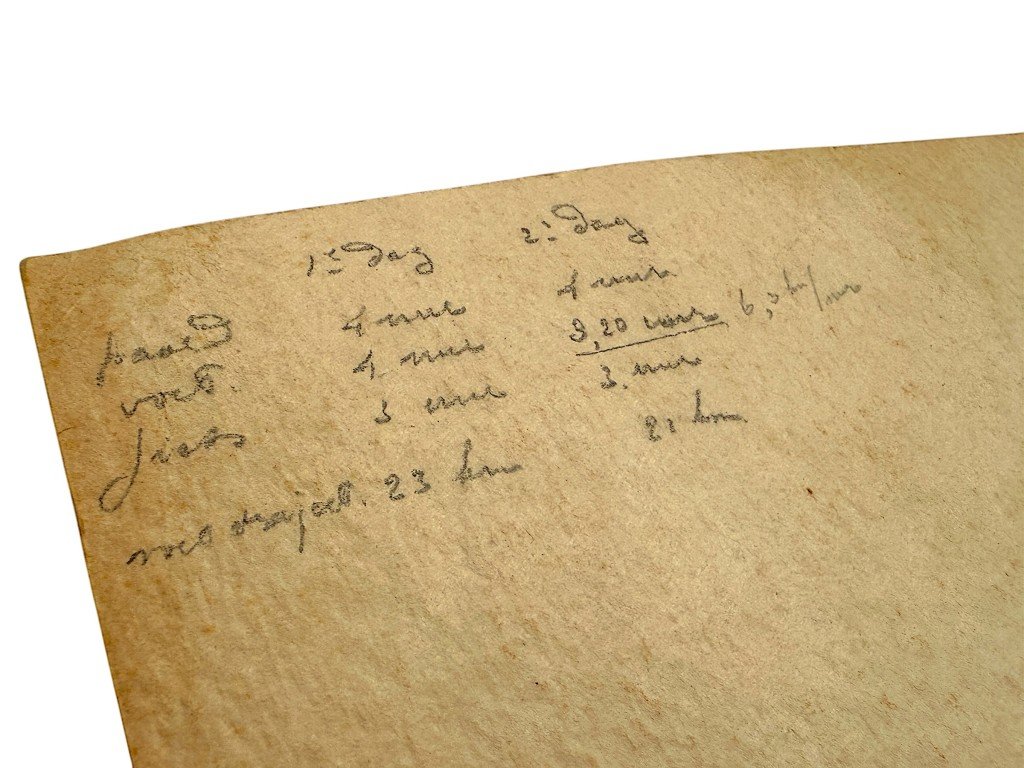 1e dag 2e dag
paard 4 uur 4 uur
voet. 4 uur 3,20 uur 6,3 km/uur
fiets 3 uur 3 uur
voettraject. 23 km 21 km